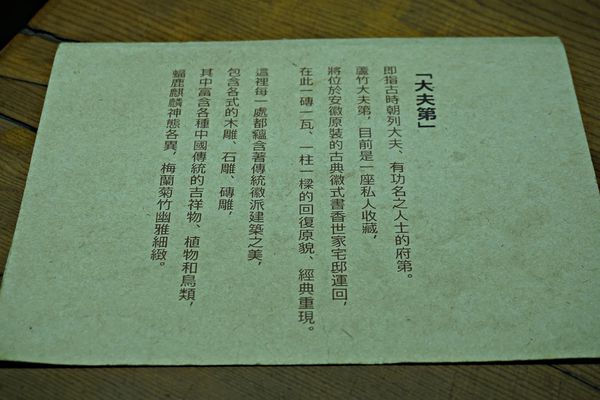 「大夫第」
即指古時朝列大夫、有功名之人士的府第。
蘆竹大夫第，目前是一座私人收藏，
將位於安徽原裝的古典徽式書香世家宅邸運回，
在此一磚一瓦、一柱一樑的回復原貌、經典重現。
這裡每一處都蘊含著傳統徽派建築之美，
包含各式的木雕、石雕、磚雕，
其中富含各種中國傳統的吉祥物、植物和鳥類，
蝠鹿麒麟神態各異，梅蘭菊竹幽雅細緻。